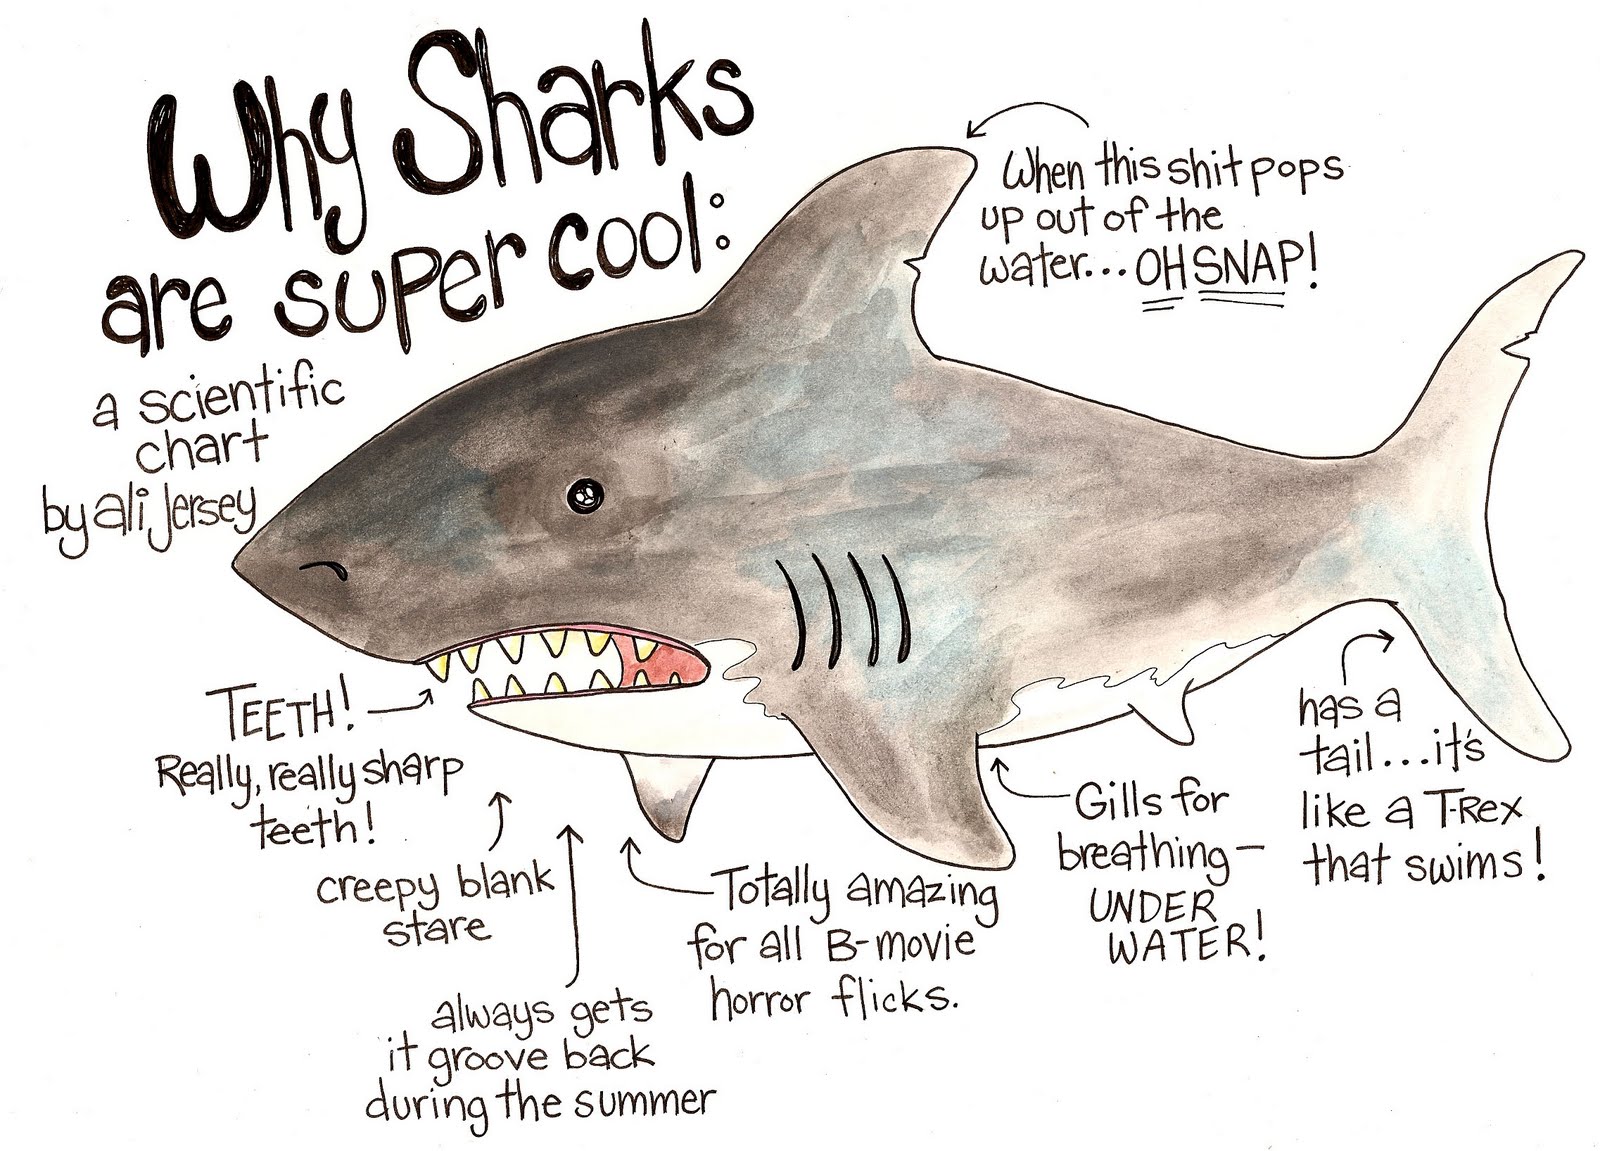 Why Sharks
are super cool:
a scientific
chart
by ali jersey
When this shit pops
up out of the
water... OH SNAP!
TEETH!
Really, really sharp
teeth!
creepy blank
stare
always gets
it groove back
during the summer
Totally amazing
for all B-movie
horror flicks.
Gills for
breathing-
UNDER
WATER!
has a
tail...it's
like a T-Rex
that swims!